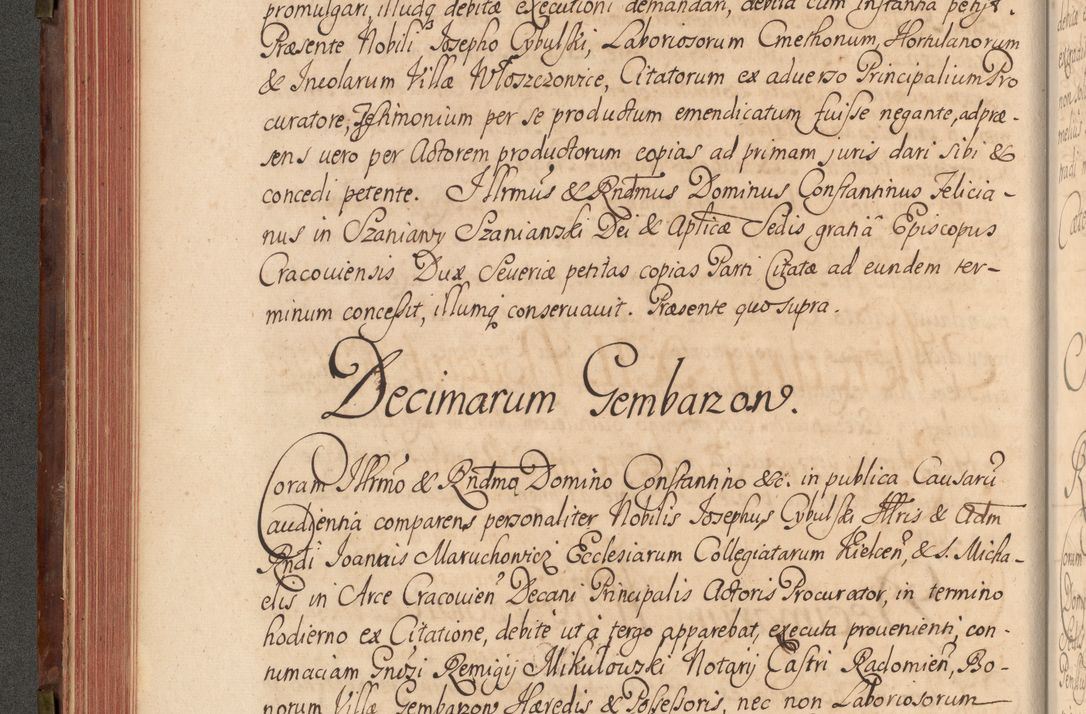 promulgari, illudq debitæ executioni demandari, debita cum instantia petijt.
Præsente Nobili Josepho Cybulski, Laboriosorum Cmethonum, Hortulanorum
& Incolarum Villæ Włoszczowice, Citatorum ex adverso Principalium Pro
curatore, Testimonium per se productum emendicatum fuisse negante, ad præ-
sens vero per Actorem productorum copias ad primam juris dari sibi &
concedi petente. Illrmus & Rndmus Dominus Constantinus Felicia-
nus in Szaniawy Szaniawski Dei & Aplicæ Sedis gratiâ Episcopus
Cracoviensis Dux Severiæ petitas copias Parti Citatæ ad eundem ter-
minum concessit, illumq conservavit. Præsente quo supra.
Decimarum Gembarzow.
Coram Illrmo & Rndmo Domino Constantino &c. in publica Causarũ
audientia comparens personaliter Nobilis Josephus Cybulski Illris & Adm
Rndi Joannis Maruchowicz Ecclesiarum Collegiatarum Kielcen, & S. Micha-
elis in Arce Cracovien Decani Principalis Actoris Procurator, in termino
hodierno ex Citatione, debite ut à tergo apparebat, executa provenienti, con-
tumaciam Gnosi Remigij Mikułowski Notarij Castri Radomien, Bo-
norum Villæ Gembarzow Hæredis & Possessoris, nec non Laboriosorum